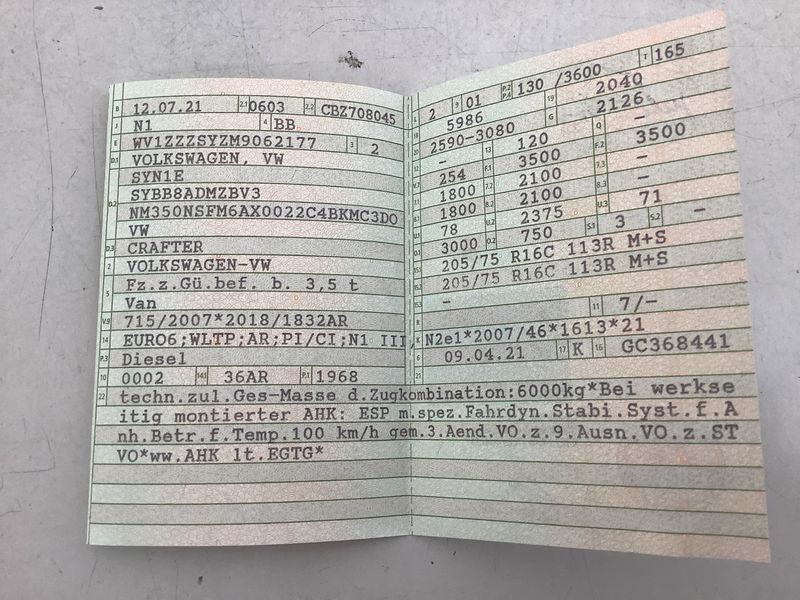 B 12.07.21 2.1 0603 2.2 CBZ708045
J N1 4 BB
E WV1ZZZSYZM9062177 3 2
D.1 VOLKSWAGEN, VW
SYN1E
D.2 SYBB8ADMZBV3
NM350NSFM6AX0022C4BKMC3DO
VW
D.3 CRAFTER
2 VOLKSWAGEN-VW
5 Fz.z.Gü.bef. b. 3,5 t
Van
V.9 715/2007*2018/1832AR
14 EURO6;WLTP;AR;PI/CI;N1 III,
P.3 Diesel
10 0002 14.1 36AR P.1 1968
22 techn.zul.Ges-Masse d.Zugkombination:6000kg*Bei werkse
itig montierter AHK: ESP m.spez.Fahrdyn.Stabi.Syst.f.A
nh.Betr.f.Temp.100 km/h gem.3.Aend.VO.z.9.Ausn.VO.z.ST
VO*ww.AHK lt.EGTG*
L 2 9 01 P.2 P.4 130 /3600 T 165
18 5986 19 2040
20 2590-3080 G 2126
12 - 13 120 Q -
V.7 254 F.1 3500 F.2 3500
7.1 1800 7.2 2100 7.3 -
8.1 1800 8.2 2100 8.3 -
U.1 78 U.2 2375 U.3 71
O.1 3000 O.2 750 S.1 3 S.2 -
15.1 205/75 R16C 113R M+S
15.2 205/75 R16C 113R M+S
15.3 -
R 11 7/-
K N2e1*2007/46*1613*21
6 09.04.21 17 K 16 GC368441
21